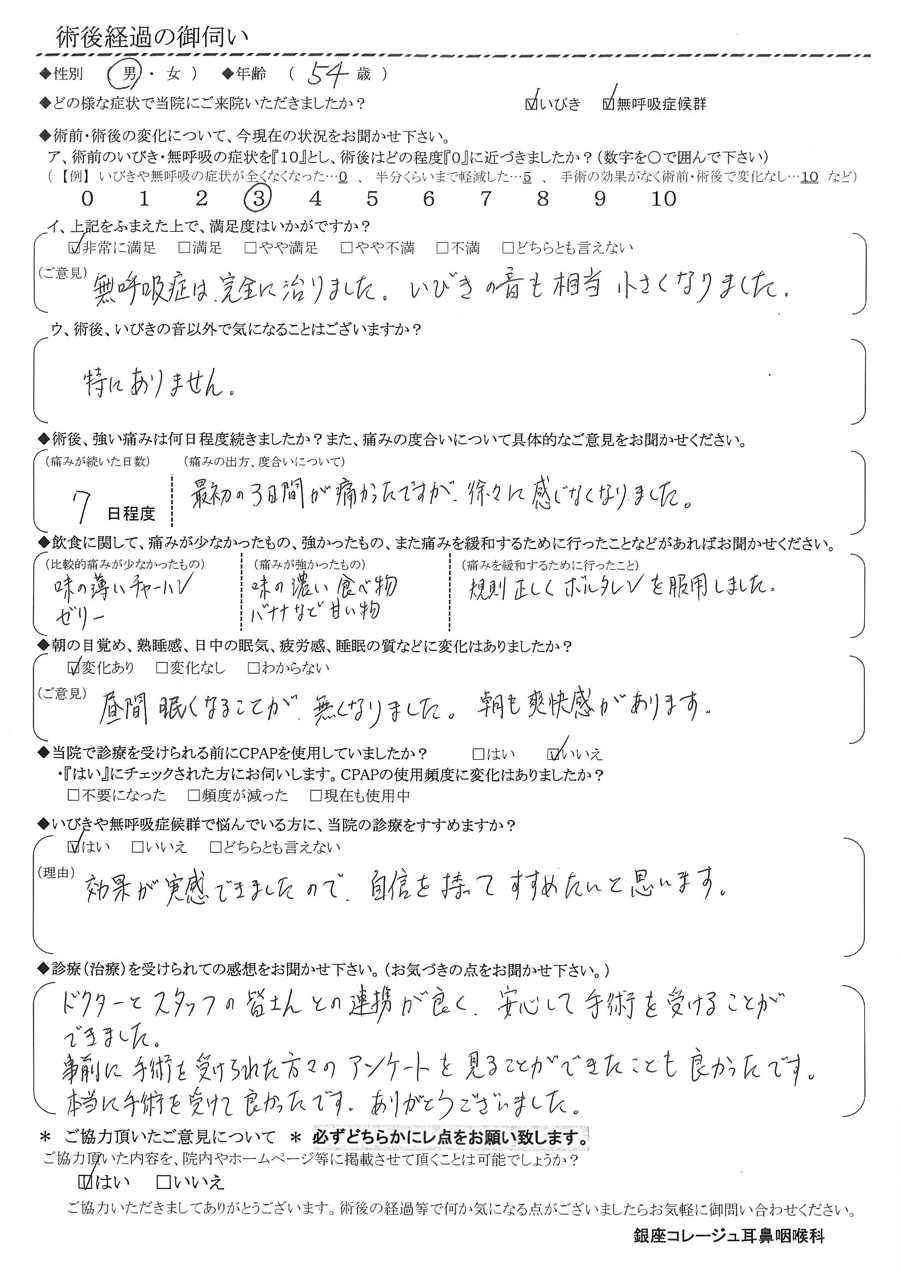 術後経過の御伺い
◆性別 ( 男 ・ 女 ) ◆年齢 ( 54 歳 )
◆どの様な症状で当院にご来院いただきましたか? ☑いびき ☑無呼吸症候群
◆術前・術後の変化について、今現在の状況をお聞かせ下さい。
ア、術前のいびき・無呼吸の症状を『10』とし、術後はどの程度『0』に近づきましたか?(数字を〇で囲んで下さい)
(【例】いびきや無呼吸の症状が全くなくなった…0 、 半分くらいまで軽減した…5 、 手術の効果がなく術前・術後で変化なし…10 など)
0 1 2 3 4 5 6 7 8 9 10
イ、上記をふまえた上で、満足度はいかがですか?
☑非常に満足 □満足 □やや満足 □やや不満 □不満 □どちらとも言えない
(ご意見) 無呼吸症は、完全に治りました。いびきの音も相当小さくなりました。
ウ、術後、いびきの音以外で気になることはございますか?
特にありません。
◆術後、強い痛みは何日程度続きましたか?また、痛みの度合いについて具体的なご意見をお聞かせください。
(痛みが続いた日数) (痛みの出方、度合いについて)
7 日程度 最初の3日間が痛かったですが、徐々に感じなくなりました。
◆飲食に関して、痛みが少なかったもの、強かったもの、また痛みを緩和するために行ったことなどがあればお聞かせください。
(比較的痛みが少なかったもの) (痛みが強かったもの) (痛みを緩和するために行ったこと)
味の薄いチャーハン 味の濃い食べ物 規則正しくボルタレンを服用しました。
ゼリー バナナなど甘い物
◆朝の目覚め、熟睡感、日中の眠気、疲労感、睡眠の質などに変化はありましたか?
☑変化あり □変化なし □わからない
(ご意見) 昼間眠くなることが、無くなりました。朝も爽快感があります。
◆当院で診療を受けられる前にCPAPを使用していましたか? □はい ☑いいえ
・『はい』にチェックされた方にお伺いします。CPAPの使用頻度に変化はありましたか?
□不要になった □頻度が減った □現在も使用中
◆いびきや無呼吸症候群で悩んでいる方に、当院の診療をすすめますか?
☑はい □いいえ □どちらとも言えない
(理由) 効果が実感できましたので、自信を持ってすすめたいと思います。
◆診療(治療)を受けられての感想をお聞かせ下さい。(お気づきの点をお聞かせ下さい。)
ドクターとスタッフの皆さんとの連携が良く、安心して手術を受けることが
できました。
事前に手術を受けられた方々のアンケートを見ることができたことも良かったです。
本当に手術を受けて良かったです。ありがとうございました。
* ご協力頂いたご意見について * 必ずどちらかにレ点をお願い致します。
ご協力頂いた内容を、院内やホームページ等に掲載させて頂くことは可能でしょうか?
☑はい □いいえ
ご協力いただきましてありがとうございます。術後の経過等で何か気になる点がございましたらお気軽に御問い合わせください。
銀座コレージュ耳鼻咽喉科